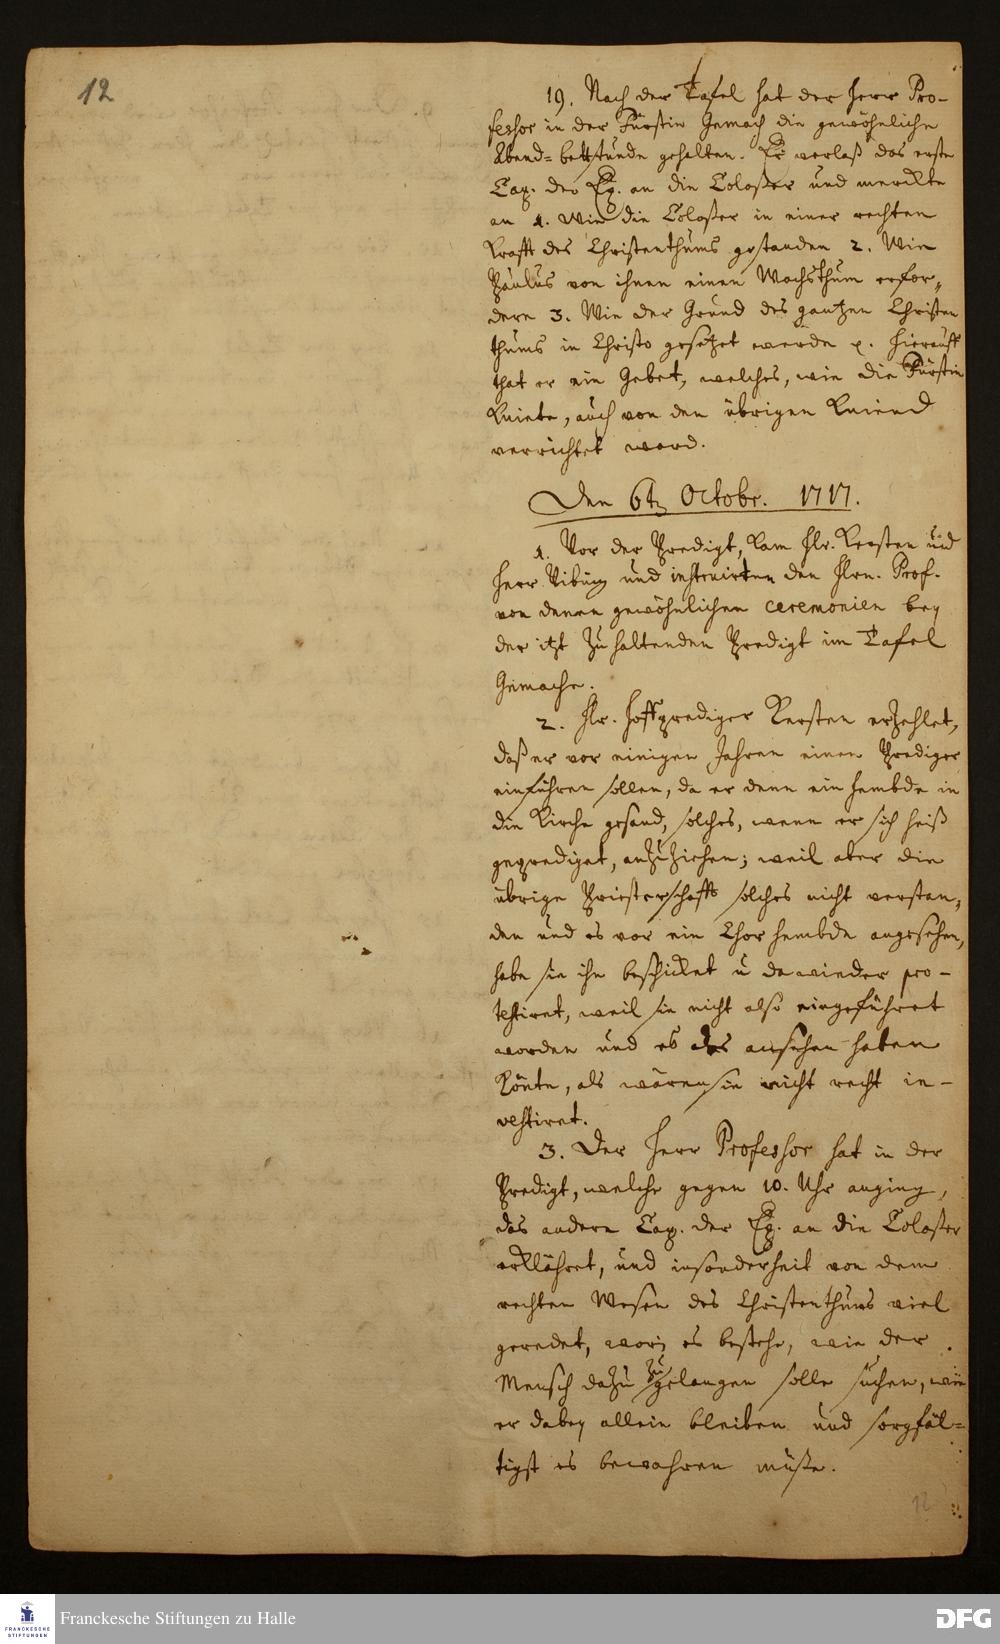 12
19. Nach der Tafel hat der Herr Pro-
fessor in der Fürstin Gemach die gewöhnliche
Abend-bethstunde gehalten. Er verlaß das erste
Cap. der Ep. an die Coloßer und merckte
an 1. Wie die Coloßer in einer rechten
Krafft des Christenthums gestanden 2. Wie
Paulus von ihnen einen Wachsthum erfor-
dere 3. Wie der Grund des gantzen Christen
thums in Christo gesetzet werde p. Hierauff
that er ein Gebet, welches, wie die Fürstin
kniete, auch von den übrigen kniend
verrichtet ward.
Den 6t. Octobr. 1717.
1. Vor der Predigt, kam Hr. Kersten und
Herr Vibüng und instruirten den Hrn. Prof.
von denen gewöhnlichen ceremonien bey
der itzt zu haltenden Predigt im Tafel
Gemache.
2. Hr. Hoffprediger Kersten erzehlet,
daß er vor einigen Jahren einen Prediger
einführen sollen, da er denn ein Hembde in
die Kirche gesand, solches, wenn er sich heiß
geprediget, anzuziehen; weil aber die
übrige Priesterschafft solches nicht verstan-
den und es vor ein Chor Hembde angesehen,
habe sie ihn beschicket u dawieder pro-
testiret, weil sie nicht also eingeführet
worden und es das ansehen haben
könte, als wären sie nicht recht in-
vestiret.
3. Der Herr Professor hat in der
Predigt, welche gegen 10. Uhr anging,
das andere Cap. der Ep. an die Coloßer
erklähret, und insonderheit von dem
rechten Wesen des Christenthums viel
geredet, worin es bestehe, wie der
Mensch dazu zu gelangen solle suchen, wie
er dabey allein bleiben und sorgfäl-
tigst es bewahren müße.
12
FRANCKESCHE
STIFTUNGEN
Franckesche Stiftungen zu Halle
DFG